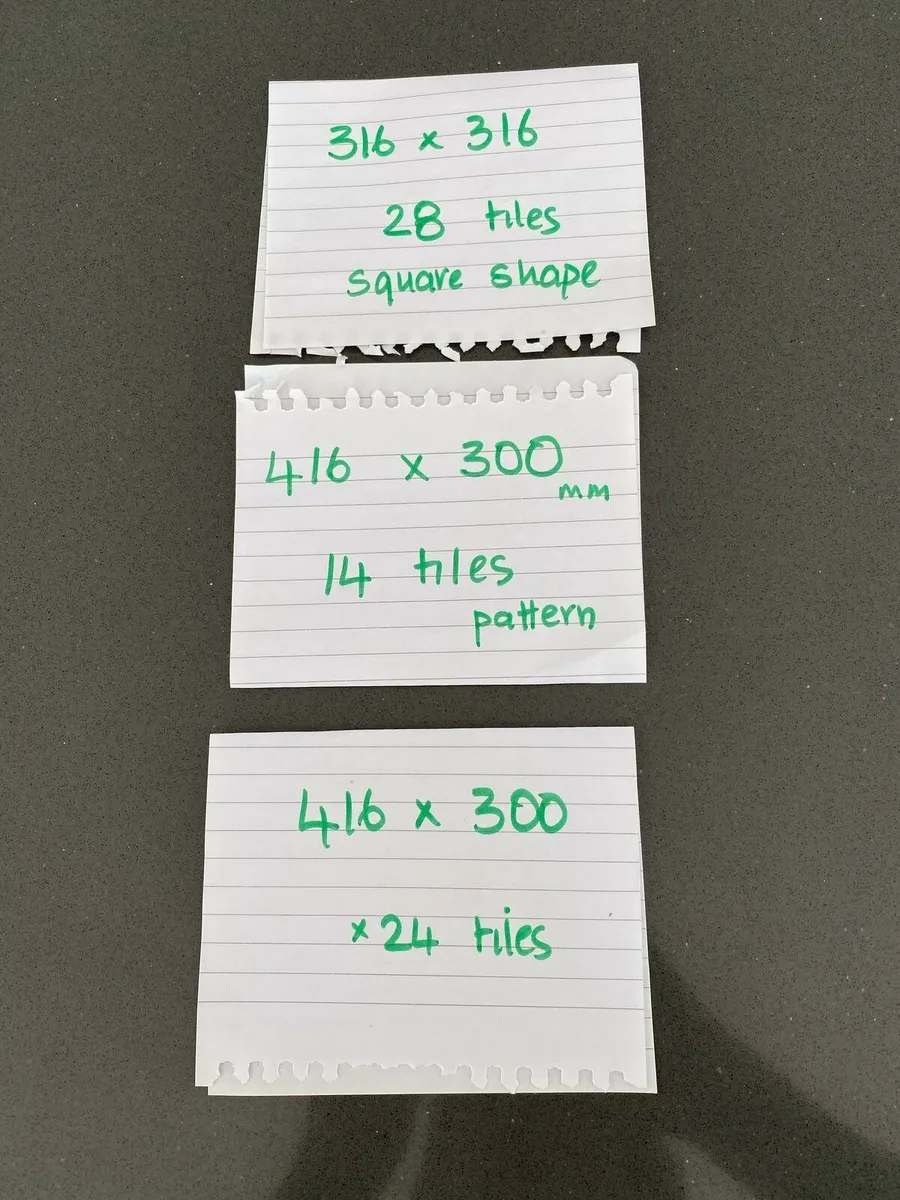 316 x 316
28 tiles
square shape
416 x 300
mm
14 tiles
pattern
416 x 300
x 24 tiles